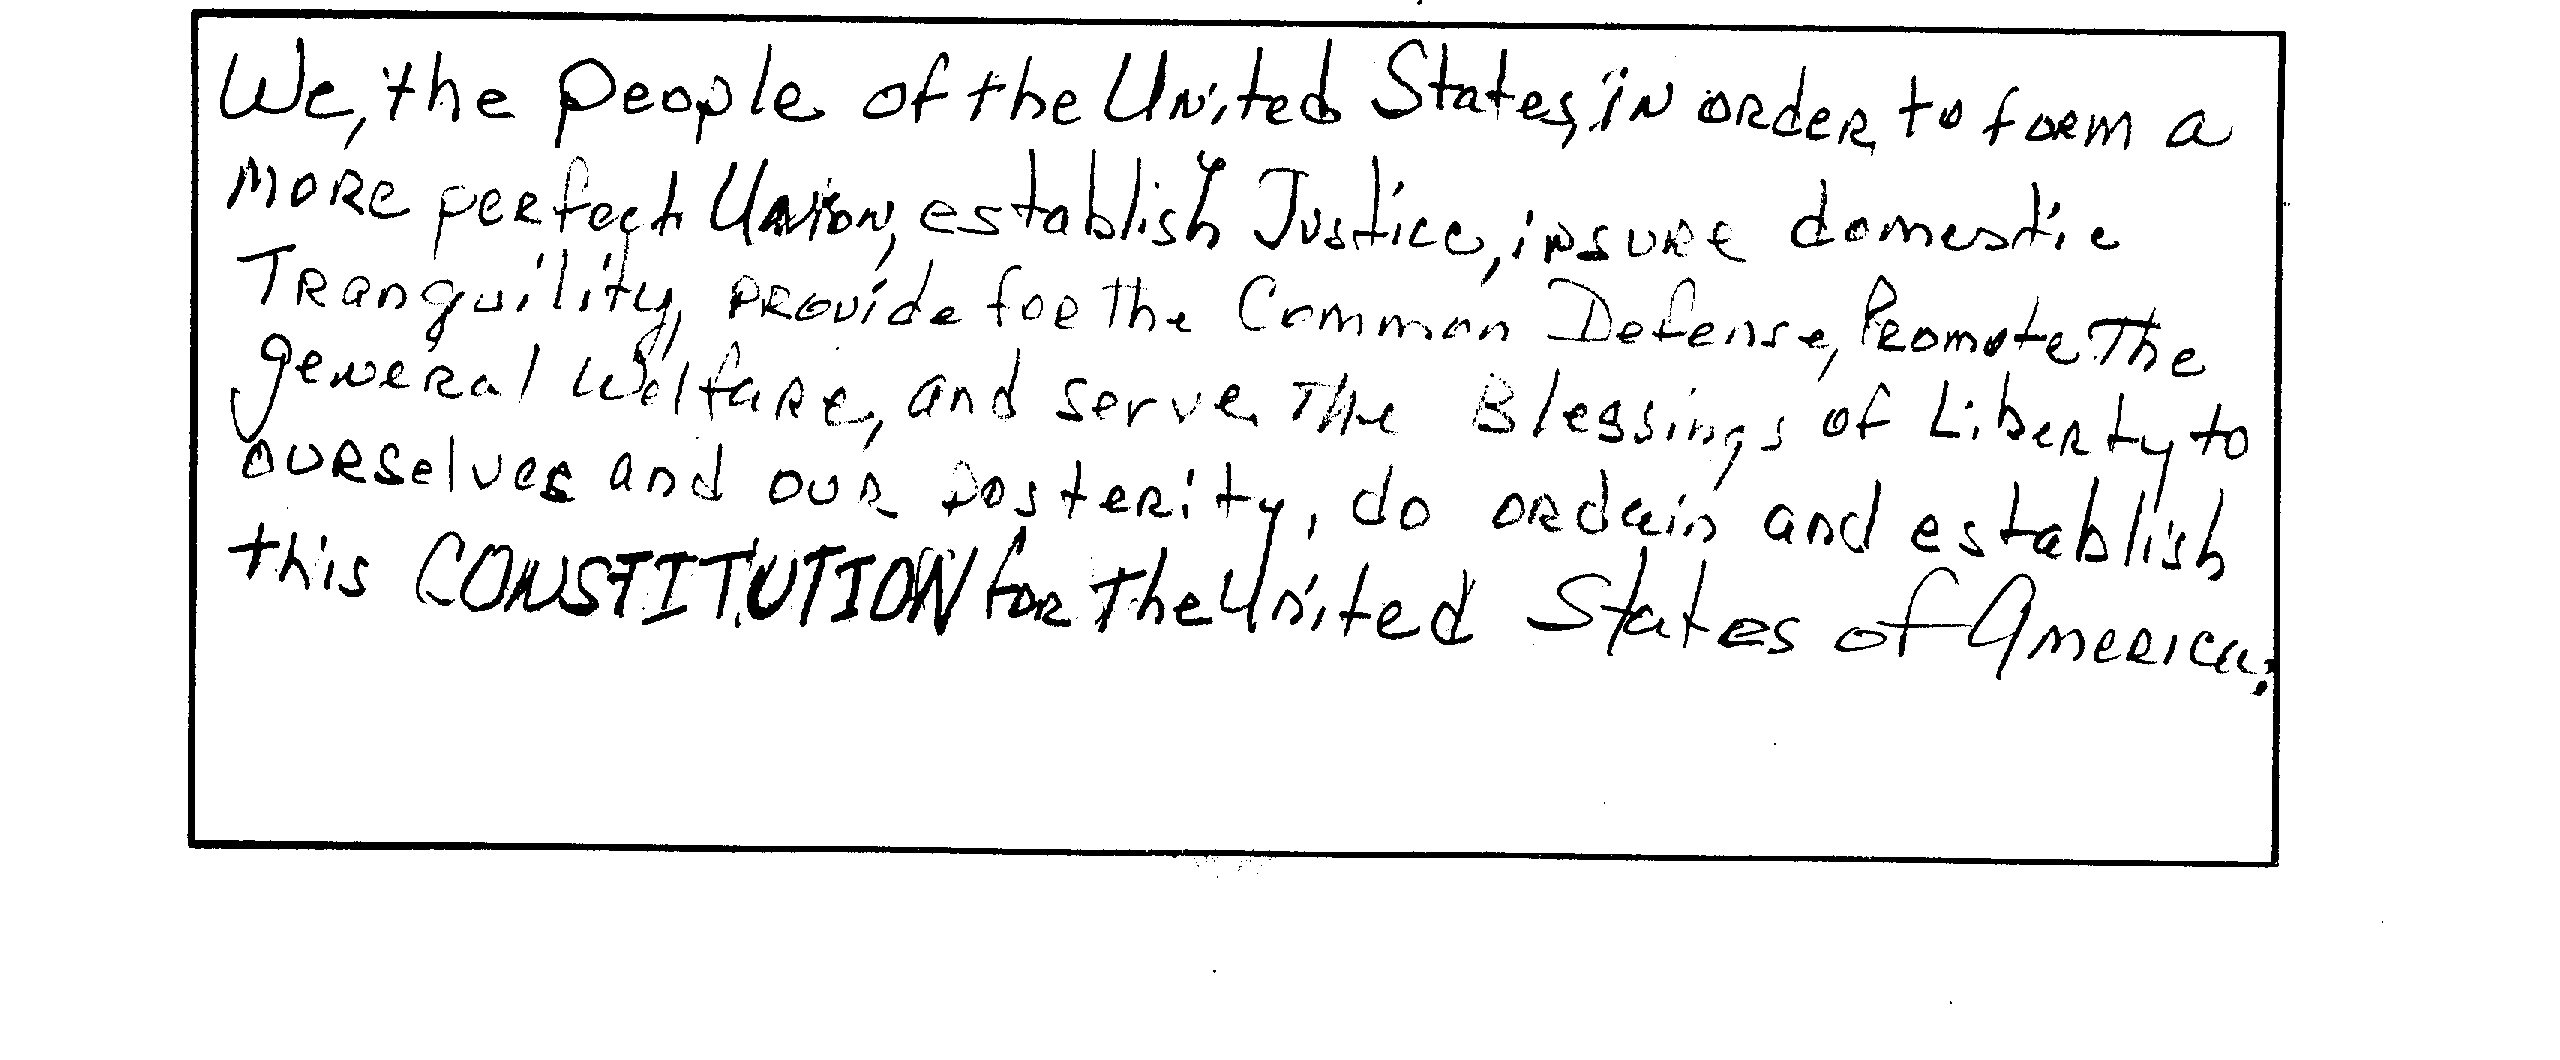 We, the people of the United States, in order to form a
more perfect Union, establish Justice, insure domestic
Tranquility, provide for the Common Defense, Promote The
general Welfare, and serve The Blessings of Liberty to
ourselves and our posterity, do ordain and establish
this CONSTITUTION for The United States of America.